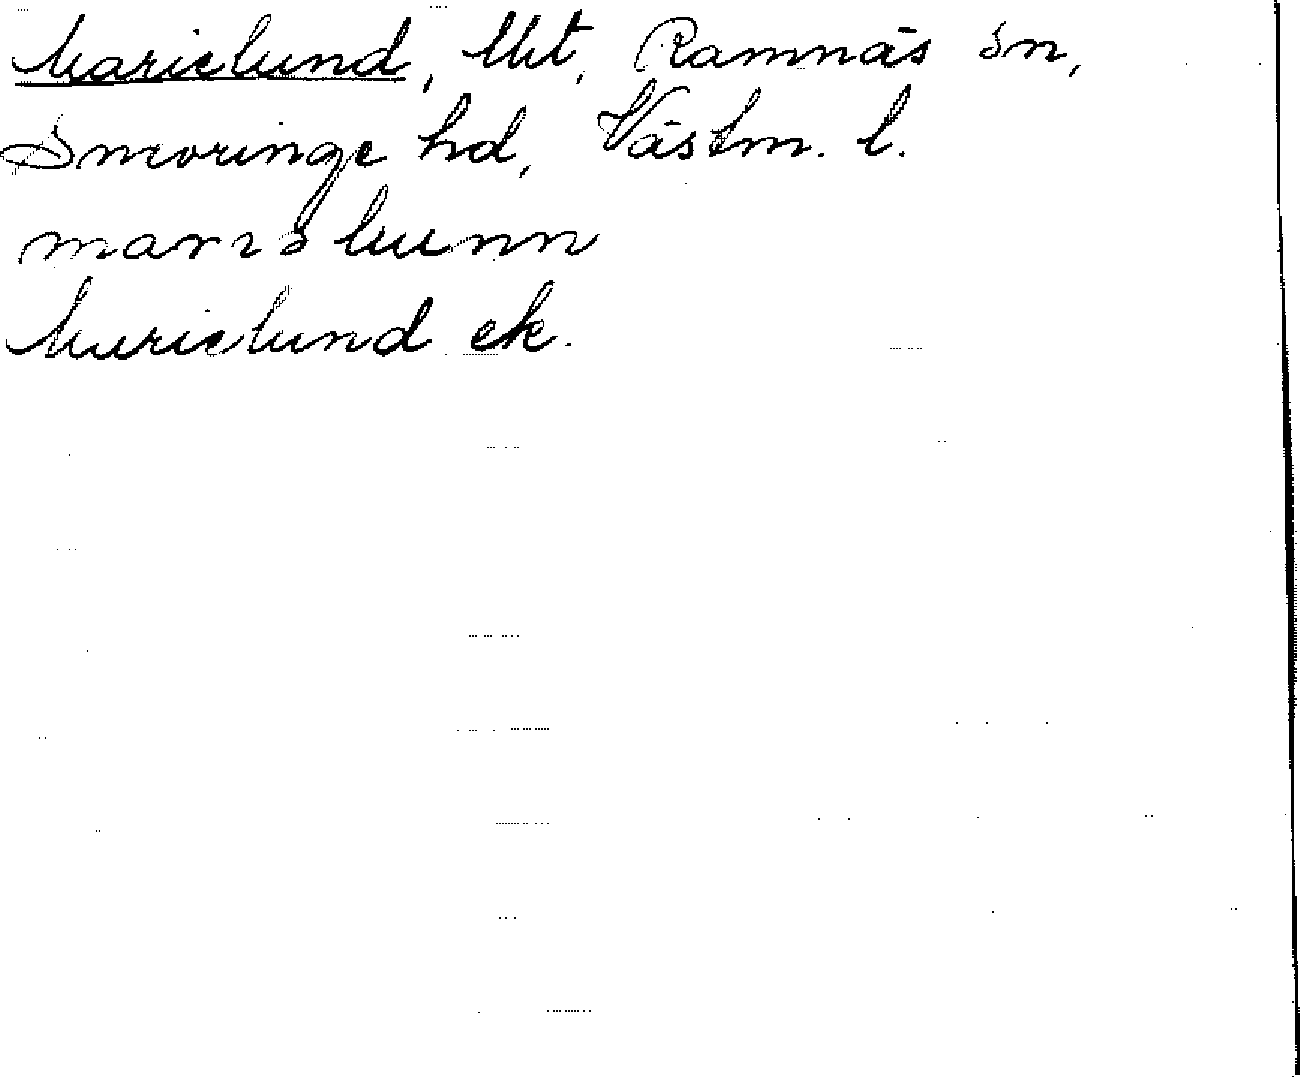 Marielund, Utt, Ramnäs sn,
Snevringe hd, Västm. l.
marɩəlunn
Marielund ek.